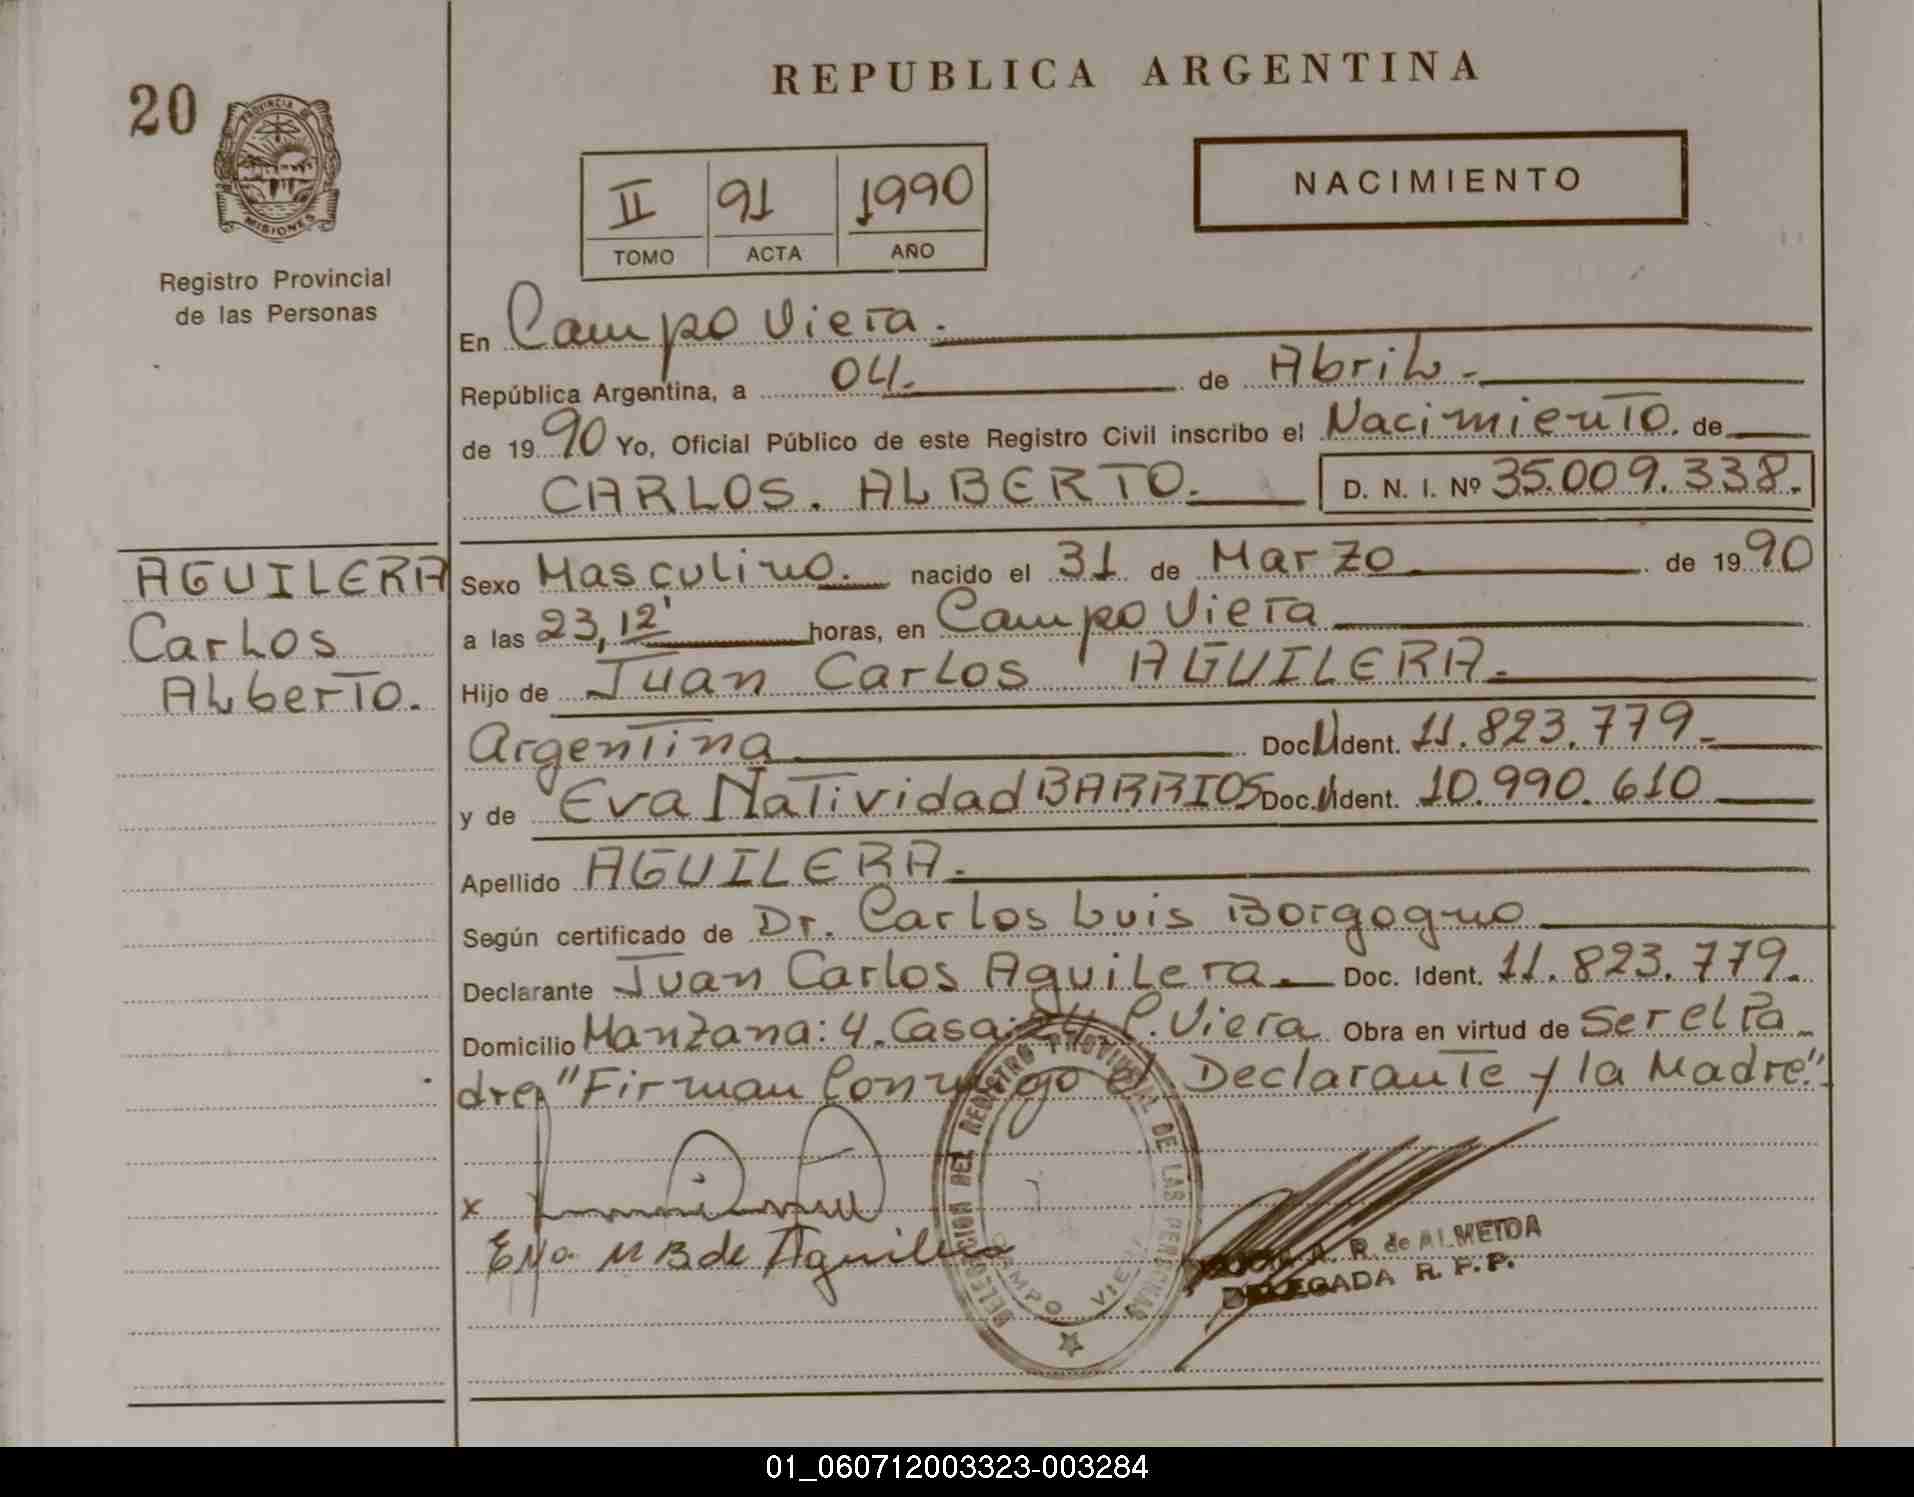 REPUBLICA ARGENTINA
20
PROVINCIA DE
MISIONES
Registro Provincial
de las Personas
II 91 1990
TOMO ACTA AÑO
NACIMIENTO
En Campo Viera.
República Argentina, a 04. de Abril.
de 1990 Yo, Oficial Público de este Registro Civil inscribo el Nacimiento. de
CARLOS. ALBERTO. D. N. I. Nº 35.009.338.
AGUILERA
Carlos
Alberto.
Sexo Masculino. nacido el 31 de Marzo de 1990
a las 23,12' horas, en Campo Viera
Hijo de Juan Carlos AGUILERA.
Argentina Doc. Ident. 11.823.779.
y de Eva Natividad BARRIOS Doc. Ident. 10.990.610
Apellido AGUILERA.
Según certificado de Dr. Carlos Luis Borgogno
Declarante Juan Carlos Aguilera. Doc. Ident. 11.823.779.
Domicilio Manzana: 4. Casa: 24 C. Viera Obra en virtud de Ser el Pa
dre, "Firman Conmigo el Declarante y la Madre".
x
Eva N B de Aguilera
DELEGACION DEL REGISTRO PROVINCIAL DE LAS PERSONAS
CAMPO VIERA
A. R. de ALMEIDA
DELEGADA R. P. P.
01_060712003323-003284